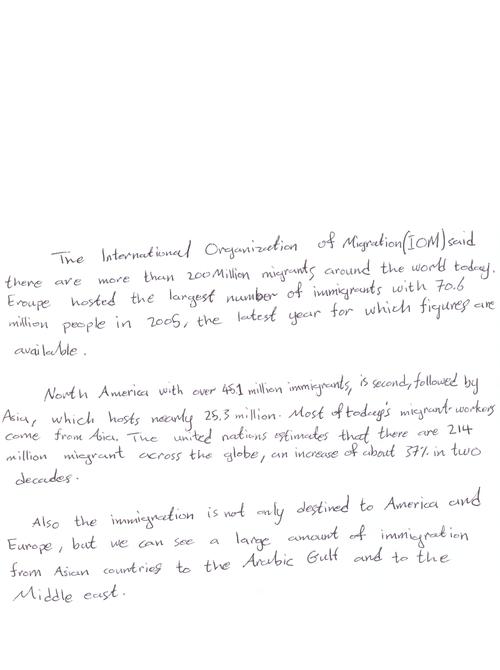 The International Organization of Migration(IOM) said
there are more than 200 Million migrants around the world today.
Eroupe hosted the largest number of immigrants with 70.6
million people in 2005, the latest year for which figures are
available.
North America with over 45.1 million immigrants, is second, followed by
Asia, which hosts nearly 25.3 million. Most of today's migrant workers
come from Asia. The united nations estimates that there are 214
million migrant across the globe, an increase of about 37% in two
decades.
Also the immigration is not only destined to America and
Europe, but we can see a large amount of immigration
from Asian countries to the Arabic Gulf and to the
Middle east.